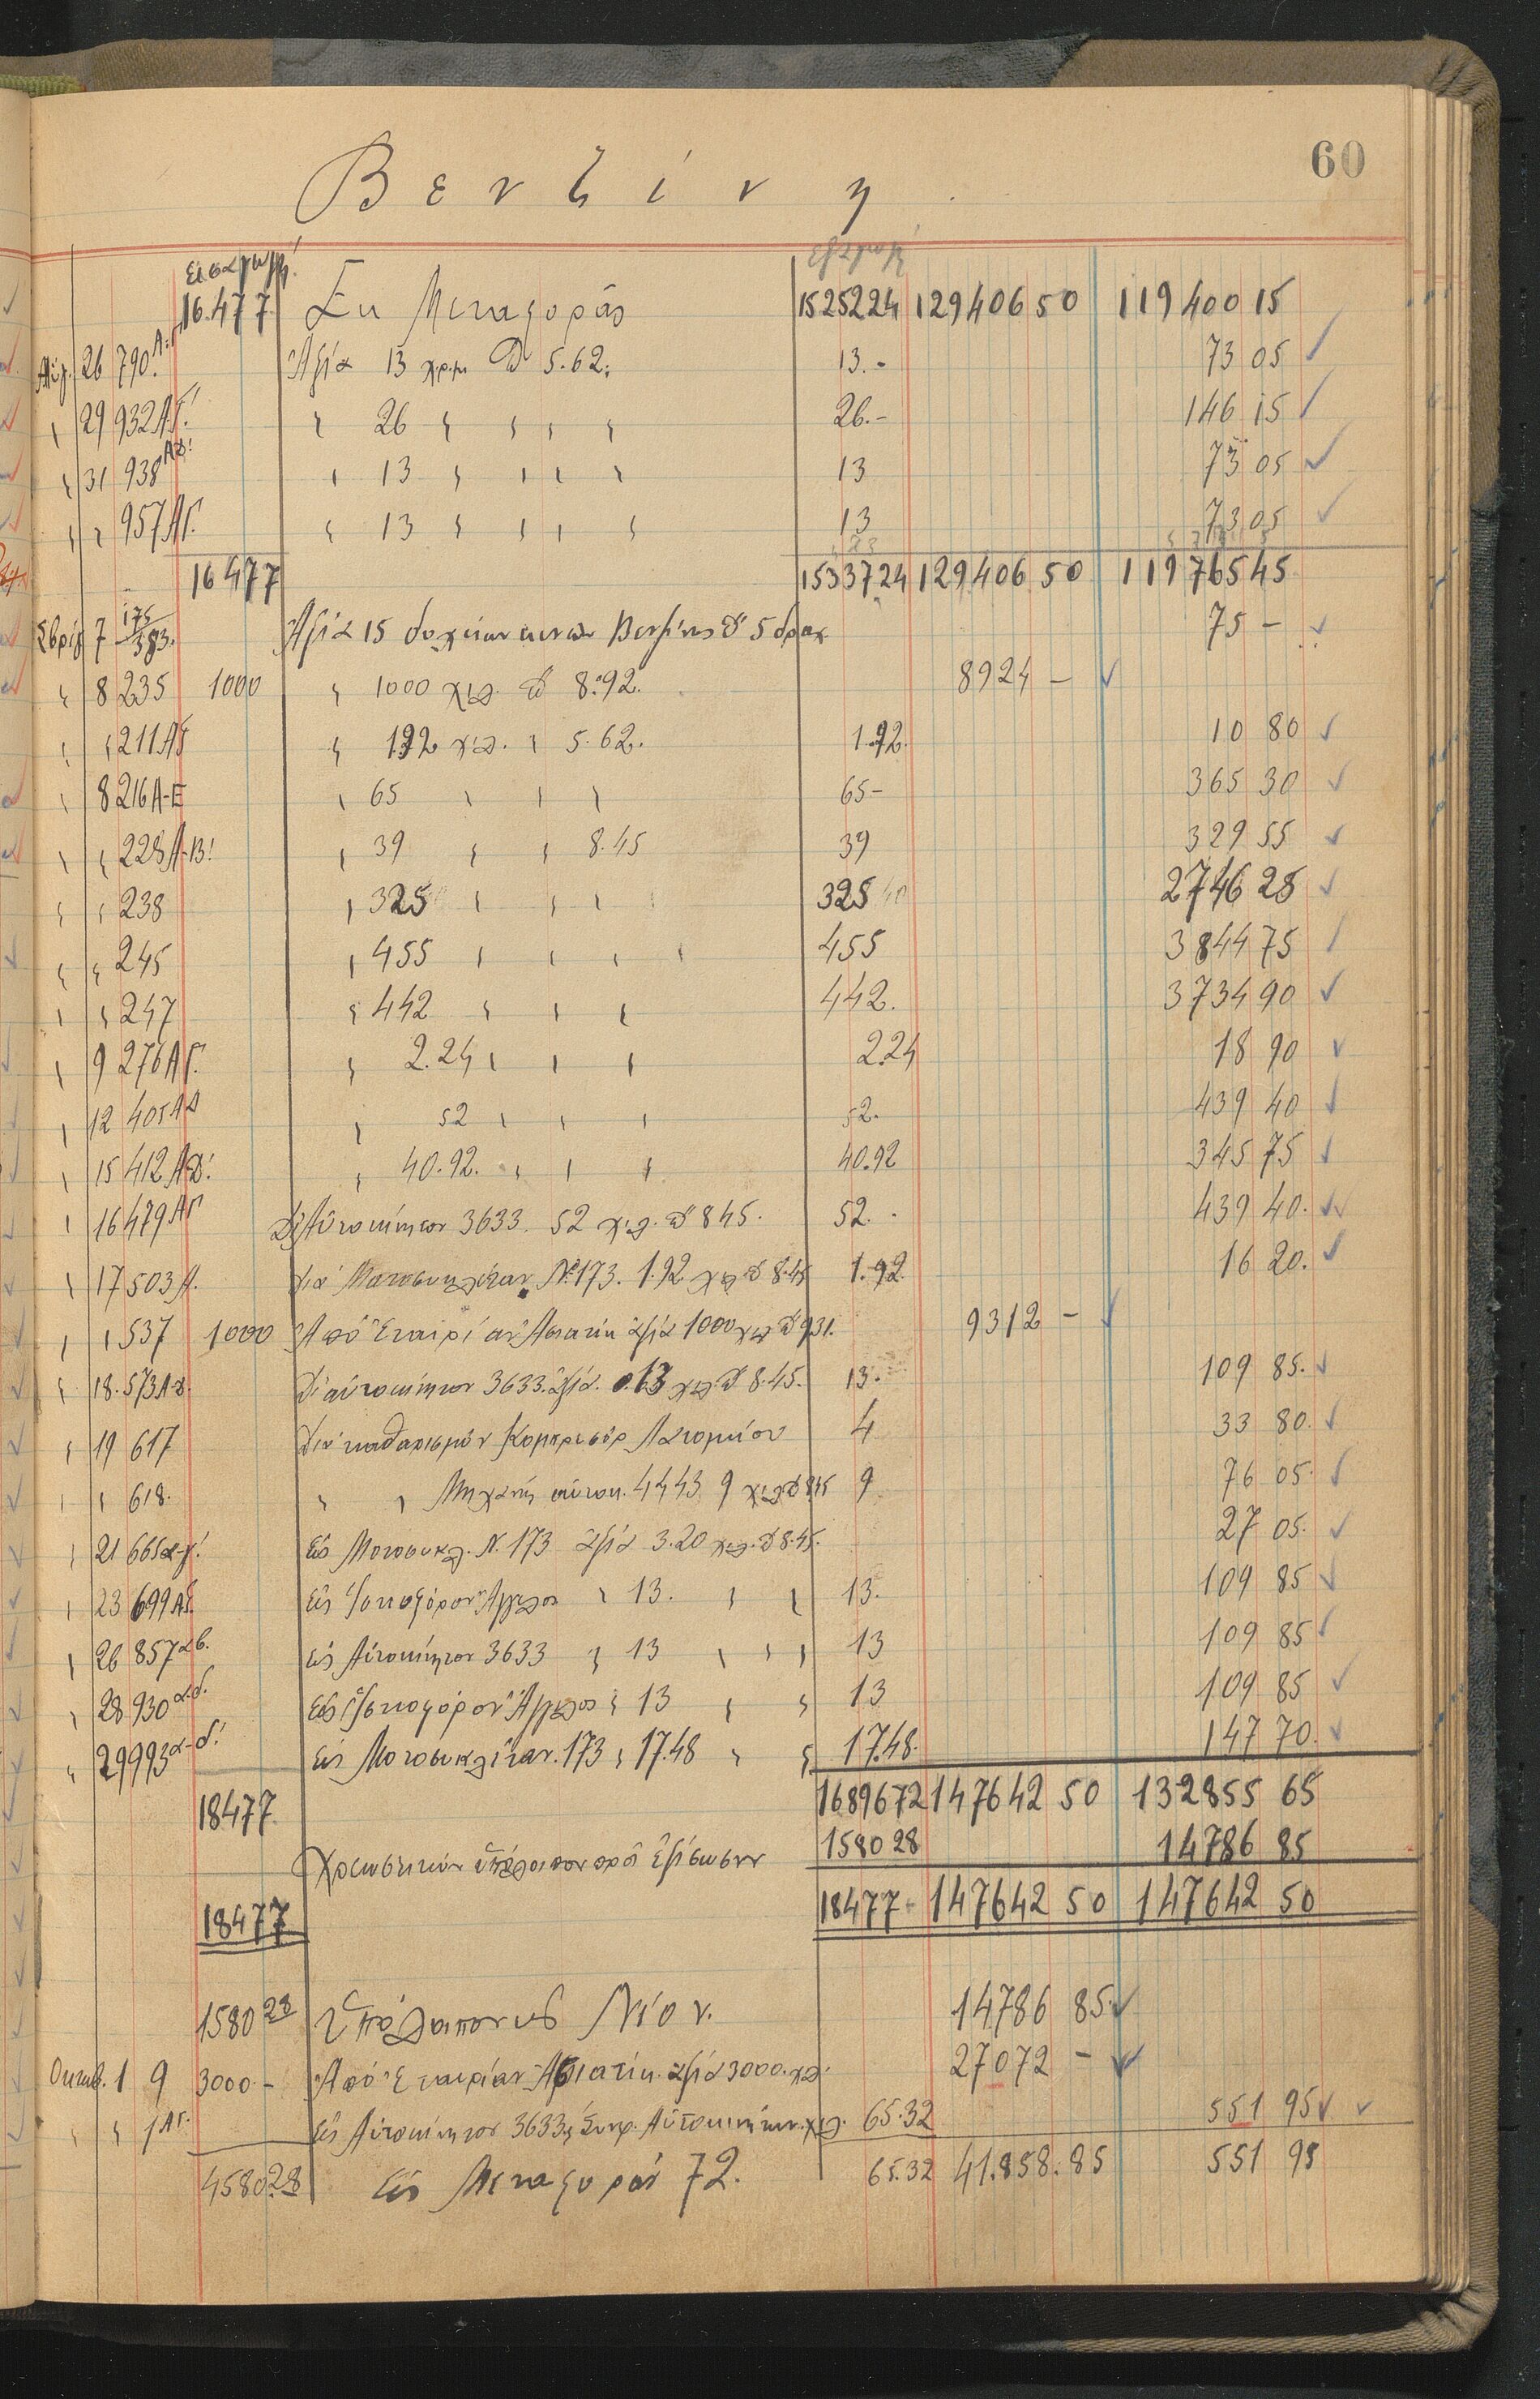 60
Βενζίνη
εισαγωγή εξαγωγή
16.477 Εκ Μεταφοράς 15252 24 129406 50 119400 15
Αύγ. 26 790 Α: Αξία 13 χρ. Π 5.62. 13.- 73 05
" 29 932 ΑΓ! " 26 " " " " 26.- 146 15
" 31 938 ΑΔ! " 13 " " " " 13 73 05
" " 957 ΑΓ. " 13 " " " " 13 73 05
16477 15337.24 129406 50 119765 45
Σβρίου 7 175/383. Αξία 15 δοχείων κενών Βενζίνης π 5 δραχ 75 -
" 8 235 1000 " 1000 χιλ. π 8.92. 8924 -
" " 211 ΑΓ " 192 χιλ. " 5.62. 1.92. 10 80
" 8 216 Α-Ε " 65 " " " 65- 365 30
" " 228 Α-Β! " 39 " " 8.45 39 329 55
" " 238 " 325 " " " 325 2746 25
" " 245 " 455 " " " " 455 3844 75
" " 247 " 442 " " " 442. 3734 90
" 9 276 ΑΓ. " 2.24 " " " 2.24 18 90
" 12 405 ΑΔ " 52 " " " 52. 439 40
" 15 412 Α-Δ! " 40.92. " " " 40.92 345 75
" 16 479 ΑΓ Δι' Αυτοκίνητον 3633. 52 χιλ. π 845. 52. 439 40.
" 17 503 Α. Δια Μοτοσυκλέταν Νο 173. 1.92 χιλ π 8.45 1.92. 16 20.
" " 537 1000 Από Εταιρίαν Ασιατικ αξία 1000 χιλ π 9.31. 9312 -
" 18. 573 Α-Δ. Δι' αυτοκίνητον 3633. αξία. 13 χιλ. π 8.45. 13. 109 85.
" 19 617 Δια καθαρισμόν Κομπρεσόρ Λατομείου 4 33 80.
" " 618. " " Μηχανής αυτοκ. 4443 9 χιλ π 845 9 76 05.
" 21 665 α-γ! Εις Μοτοσυκλ. Ν. 173 αξία 3.20 χιλ. π 8.45. 27 05.
" 23 699 ΑΔ. εις Ιστιοφόρον Άγγελος " 13. " " 13. 109 85
" 26 857 αβ. εις Αυτοκίνητον 3633 " 13 " " " 13 109 85
" 28 930 α-δ. εις Ιστιοφόρον Άγγελος " 13 " " 13 109 85
" 29 993 α-δ! Εις Μοτοσυκλέταν. 173 " 17.48 " " 17.48. 147 70.
18477 16896 72 147642 50 132855 65
Χρεωστικόν υπόλοιπον προς εξίσωσιν 1580 28 14786 85
18477 18477- 147642 50 147642 50
1580 28 Υπόλοιπον εις Νέον. 14786 85
Οκτωβ. 1 9 3000- Από Εταιρίαν Ασιατικ. αξία 3000. χιλ. 27072 -
" " 1 ΑΓ. Εις Αυτοκίνητον 3633 Αυτοκινήτων. χιλ. 65.32 551 95
4580.28 Εις Μεταφοράν 72. 65.32 41.858.85 551 95